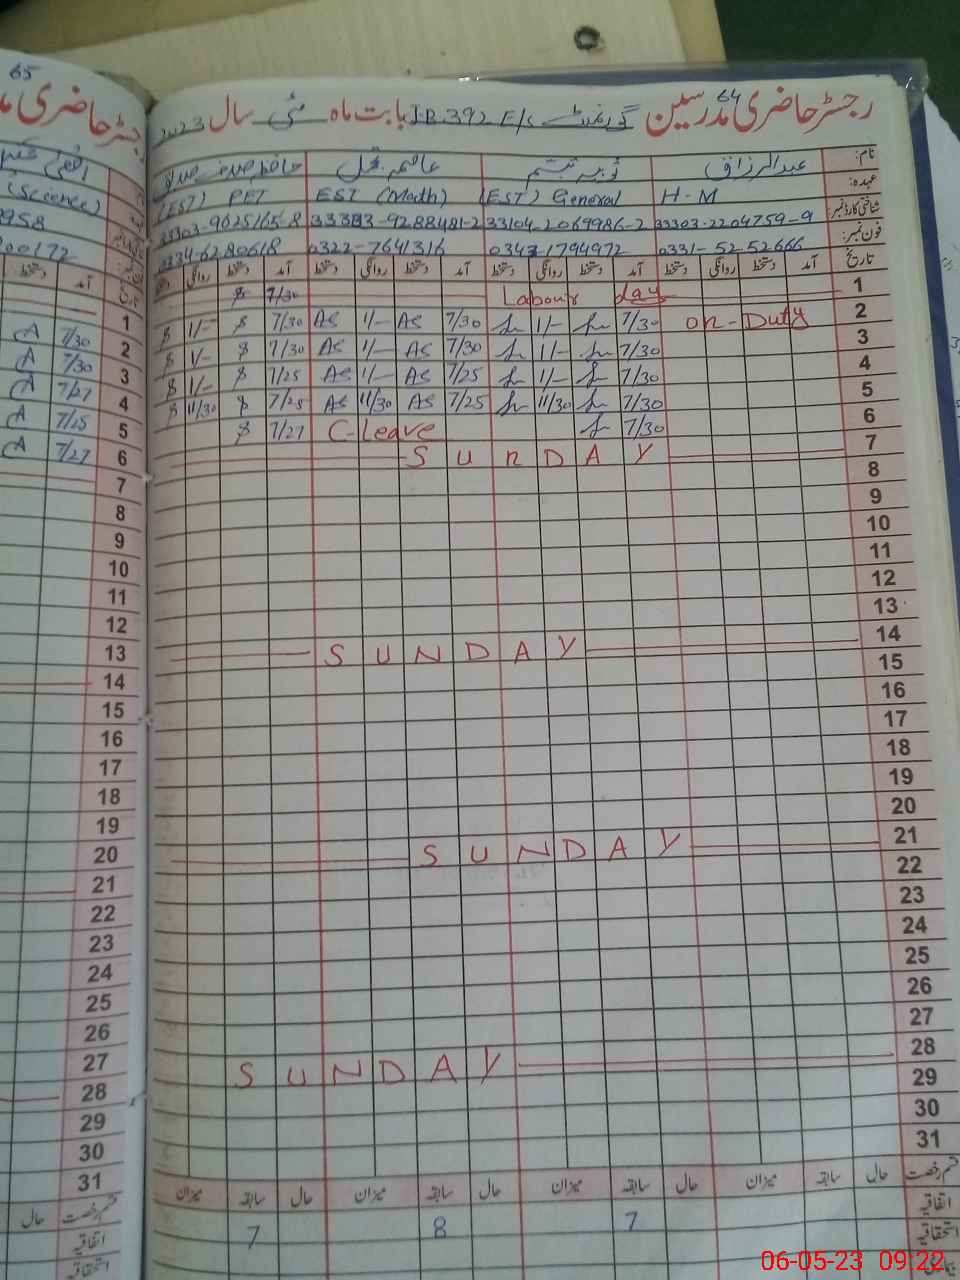 65
رجسٹر حاضری مدرسین 64 گورنمنٹ J.B.392 E/S بابت ماہ مئی سال 2023
نام: عبدالرزاق
عہدہ: H-M (EST) General EST (Math) (EST) PET
شناختی کارڈ نمبر: 33303-2204759-9 33104-2069986-2 33303-9288481-2 33303-9625165-8
فون نمبر: 0331-5252666 0343-1794972 0322-7641316 0334-6280618
تاریخ آمد دستخط روانگی دستخط آمد دستخط روانگی دستخط آمد دستخط روانگی دستخط آمد دستخط روانگی
1 Labour day 7/30
2 on-Duty 7/30 1/- 7/30 AS 1/- AS 7/30 1/-
3 7/30 1/- 7/30 AS 1/- AS 7/30 1/-
4 7/30 1/- 7/25 AS 1/- AS 7/25 1/-
5 7/30 11/30 7/25 AS 11/30 AS 7/25 11/30
6 7/30 C-Leave 7/27
7 SUNDAY
8
9
10
11
12
13
14 SUNDAY
15
16
17
18
19
20
21 SUNDAY
22
23
24
25
26
27
28 SUNDAY
29
30
31
قسم رخصت حال سابقہ میزان حال سابقہ میزان حال سابقہ میزان حال سابقہ میزان
اتفاقیہ 7 8 7
استحقاقیہ
رجسٹر حاضری
(Science)
8958
200172
تاریخ آمد دستخط
1 7/30
2 7/30
3 7/27
4 7/25
5 7/27
6
7
8
9
10
11
12
13
14
15
16
17
18
19
20
21
22
23
24
25
26
27
28
29
30
31
قسم رخصت حال
اتفاقیہ
استحقاقیہ
06-05-23 09:22